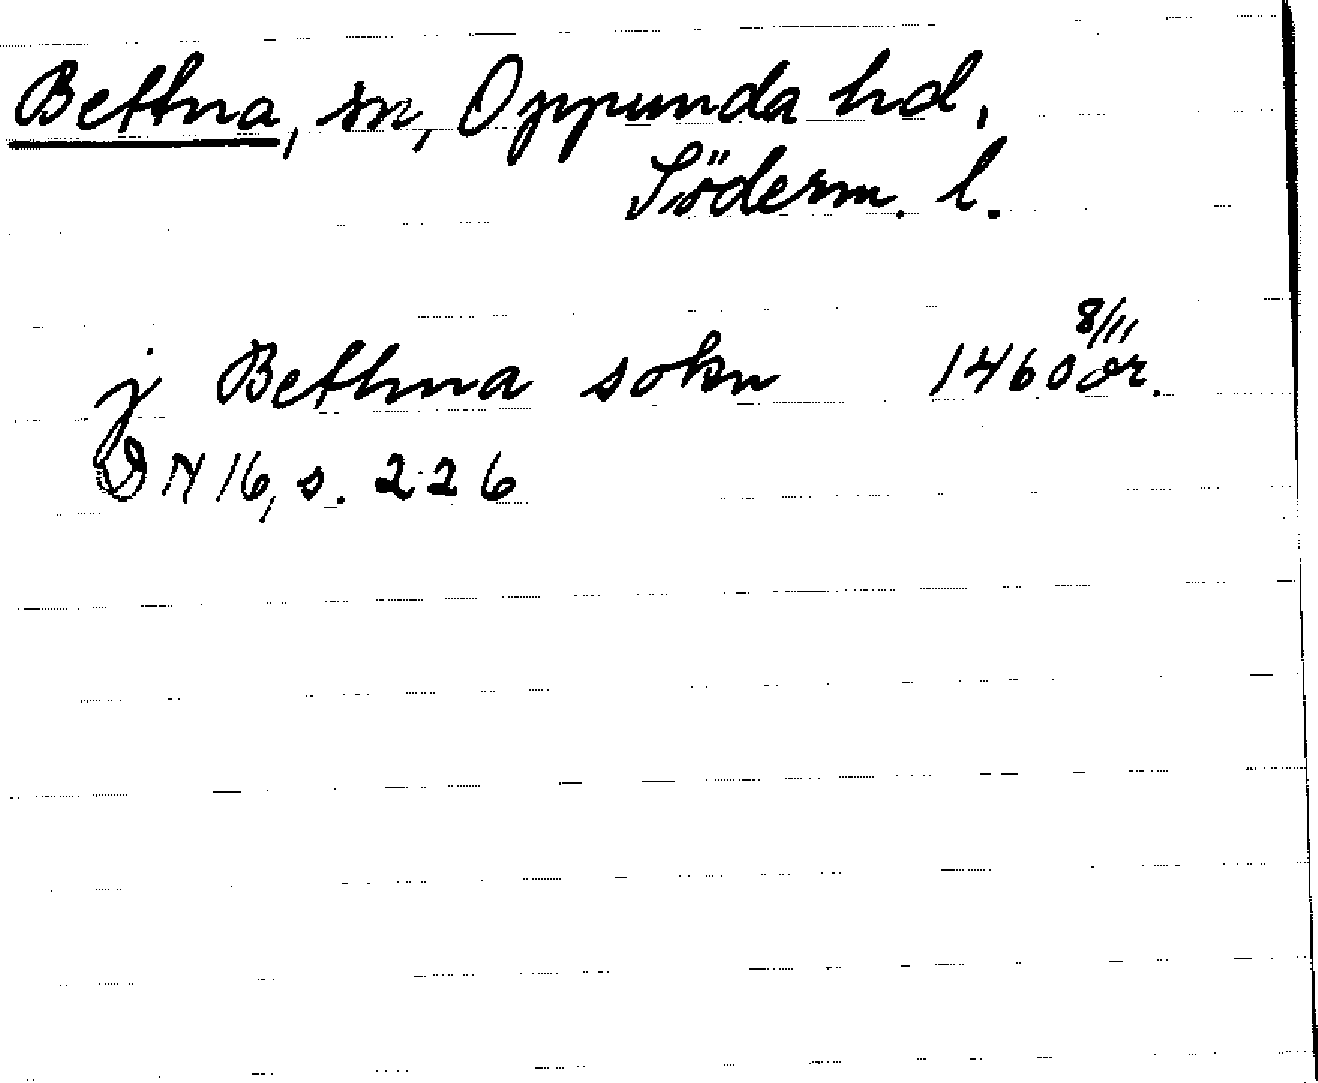 Bettna, sn, Oppunda hd,
Söderm. l.
j Bethna sokn 1460 8/11 or.
DN 16, s. 226